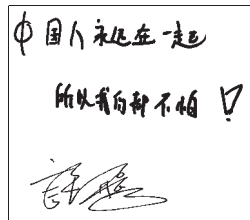 中国人永远在一起
所以我们都不怕！